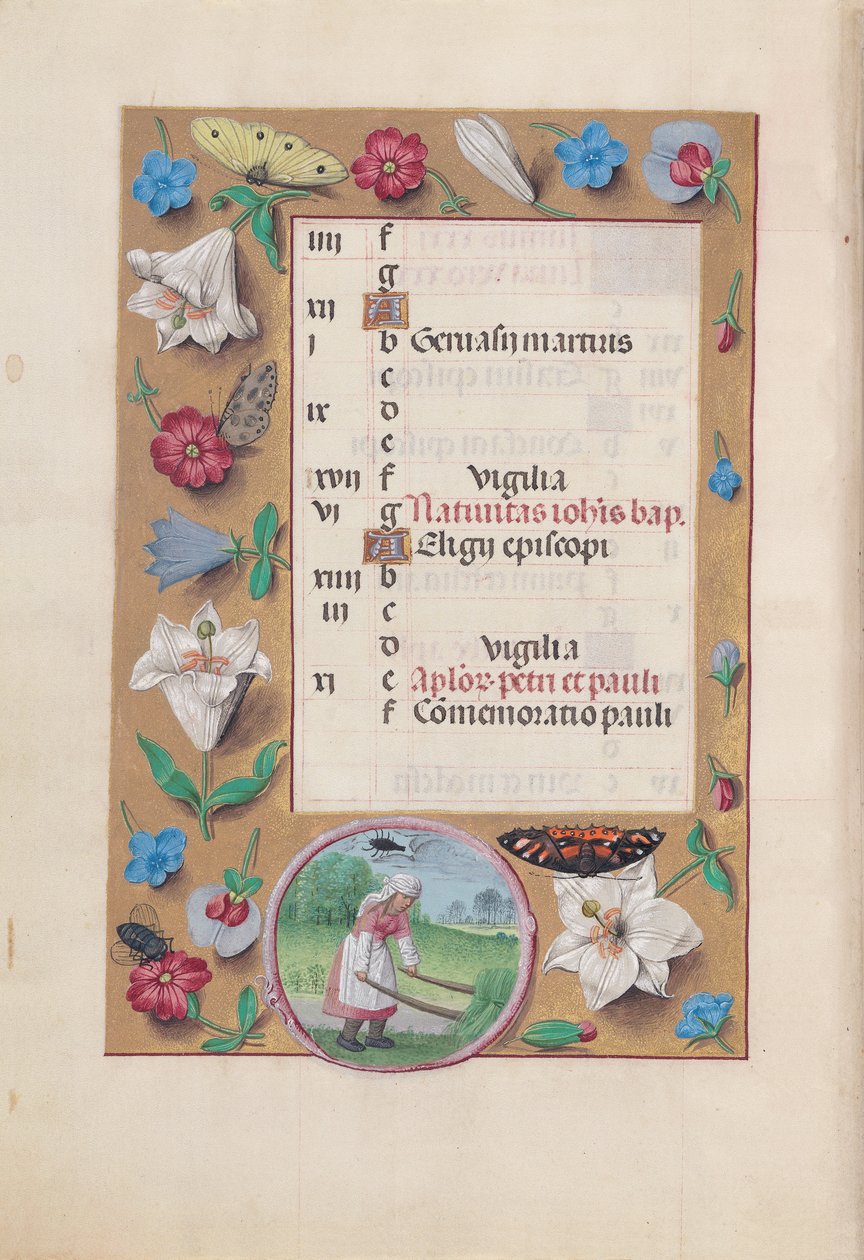 iiij f
g
xij A
j b Geruasij martiris
c
ix d
e
xvij f vigilia
vj g Natiuitas ioh̄is bap.
A Eligij episcopi
xiiij b
iij c
d vigilia
xj e Ap̄lor̄ petri et pauli
f Cōmemoratio pauli